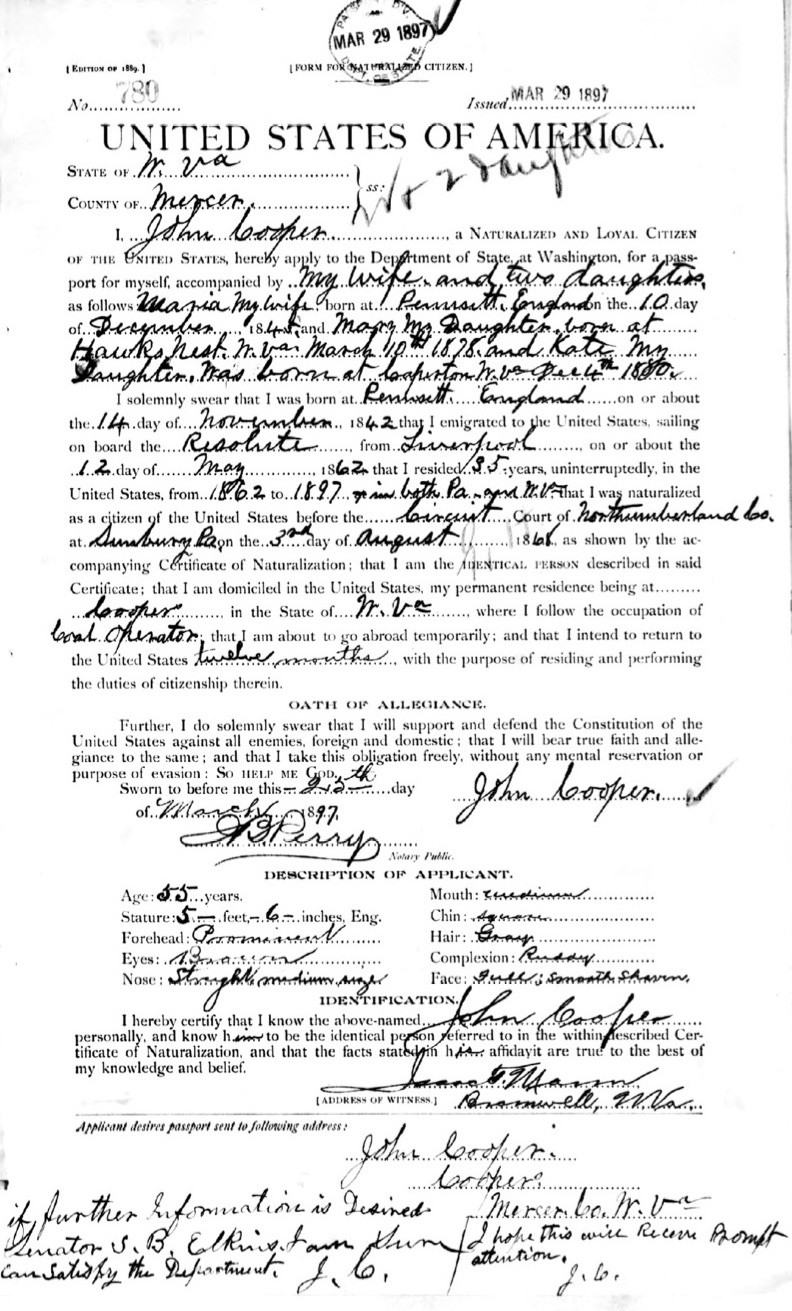 PASSPORT DIV.
MAR 29 1897
DEPT. OF STATE.
[EDITION OF 1889.] [FORM FOR NATURALIZED CITIZEN.]
No. 780 Issued MAR 29 1897
UNITED STATES OF AMERICA.
2 daughters
STATE OF W. Va
COUNTY OF Mercer } ss:
I, John Cooper, a NATURALIZED AND LOYAL CITIZEN
OF THE UNITED STATES, hereby apply to the Department of State, at Washington, for a pass-
port for myself, accompanied by My wife and two daughters,
as follows Maria My wife, born at Pennsett, England on the 10 day
of December, 1845, and Mary My Daughter, born at
Hawks Nest, W. Va. March 10th 1878 and Kate My
Daughter, Was born at Caperton W. Va Dec 4th 1880.
I solemnly swear that I was born at Pennsett England on or about
the 14 day of November, 1842 that I emigrated to the United States, sailing
on board the Resolute, from Liverpool, on or about the
12 day of May, 1862 that I resided 35 years, uninterruptedly, in the
United States, from 1862 to 1897, in both Pa. and W. Va that I was naturalized
as a citizen of the United States before the Circuit Court of Northumberland Co.
at Sunbury Pa, on the 3rd day of August 1868, as shown by the ac-
companying Certificate of Naturalization; that I am the IDENTICAL PERSON described in said
Certificate; that I am domiciled in the United States, my permanent residence being at
Coopers, in the State of W. Va, where I follow the occupation of
Coal Operator; that I am about to go abroad temporarily; and that I intend to return to
the United States twelve months, with the purpose of residing and performing
the duties of citizenship therein.
OATH OF ALLEGIANCE.
Further, I do solemnly swear that I will support and defend the Constitution of the
United States against all enemies, foreign and domestic; that I will bear true faith and alle-
giance to the same; and that I take this obligation freely, without any mental reservation or
purpose of evasion: SO HELP ME GOD.
Sworn to before me this 25th day
of March 1897, John Cooper.
Perry
Notary Public.
DESCRIPTION OF APPLICANT.
Age: 55 years. Mouth: medium
Stature: 5 feet, 6 inches, Eng. Chin: square
Forehead: Prominent Hair: Gray
Eyes: Brown Complexion: Ruddy
Nose: Straight, medium size Face: Full; smooth shaven.
IDENTIFICATION.
I hereby certify that I know the above-named John Cooper
personally, and know him to be the identical person referred to in the within described Cer-
tificate of Naturalization, and that the facts stated in his affidavit are true to the best of
my knowledge and belief.
Mann
[ADDRESS OF WITNESS.] Bramwell, W Va.
Applicant desires passport sent to following address:
John Cooper.
Coopers
Mercer Co. W. Va
if further Information is Desired
Senator S. B. Elkins I am Sure
can Satisfy the Department. J. C.
I hope this will Receive Prompt
attention.
J. C.